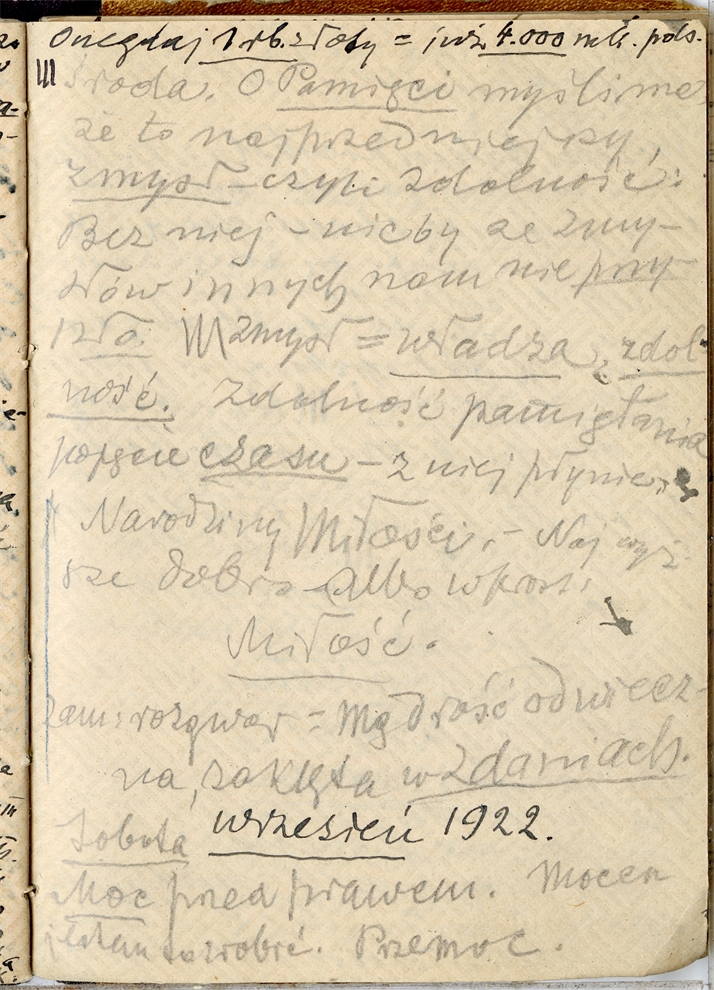 Onegdaj 1 rb. złoty = już 4.000 mk. pols.
III Środa. O Pamięci myślimy
że to najprzedniejszy
zmysł – czyli zdolność:
Bez niej – nicby ze zmy-
słów innych nam nie przy-
szło. Zmysł = władza, zdol-
ność. Zdolność pamiętania
pojęcie czasu – z niej płynie.
Narodziny Miłości. – Najwyż-
sze dobro albo wprost:
Miłość.
rozgwar = Mądrość odwiecz-
na, zaklęta w zdaniach.
Sobota wrzesień 1922.
Moc przed prawem. Mocen
jestem to zrobić. Przemoc.